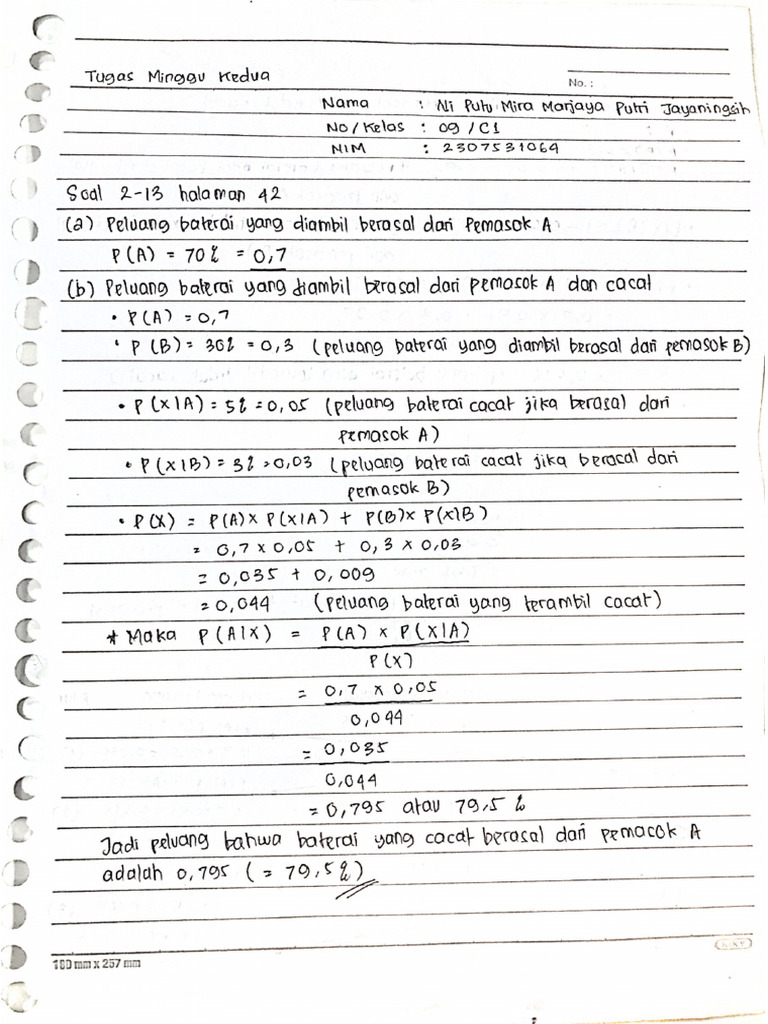 Tugas Minggu Kedua
No. :
Nama : Ni Putu Mira Marjaya Putri Jayaningsih
No/Kelas : 09 / C1
NIM : 2307531064
Soal 2-13 halaman 42
(a) Peluang baterai yang diambil berasal dari Pemasok A
P(A) = 70% = 0,7
(b) Peluang baterai yang diambil berasal dari pemasok A dan cacat
• P(A) = 0,7
• P(B) = 30% = 0,3 (peluang baterai yang diambil berasal dari pemasok B)
• P(X|A) = 5% = 0,05 (peluang baterai cacat jika berasal dari
pemasok A)
• P(X|B) = 3% = 0,03 (peluang baterai cacat jika berasal dari
pemasok B)
• P(X) = P(A) x P(X|A) + P(B) x P(X|B)
= 0,7 x 0,05 + 0,3 x 0,03
= 0,035 + 0,009
= 0,044 (peluang baterai yang terambil cacat)
* Maka P(A|X) = P(A) x P(X|A)
P(X)
= 0,7 x 0,05
0,044
= 0,035
0,044
= 0,795 atau 79,5 %
Jadi peluang bahwa baterai yang cacat berasal dari pemasok A
adalah 0,795 (= 79,5%)
180 mm x 257 mm